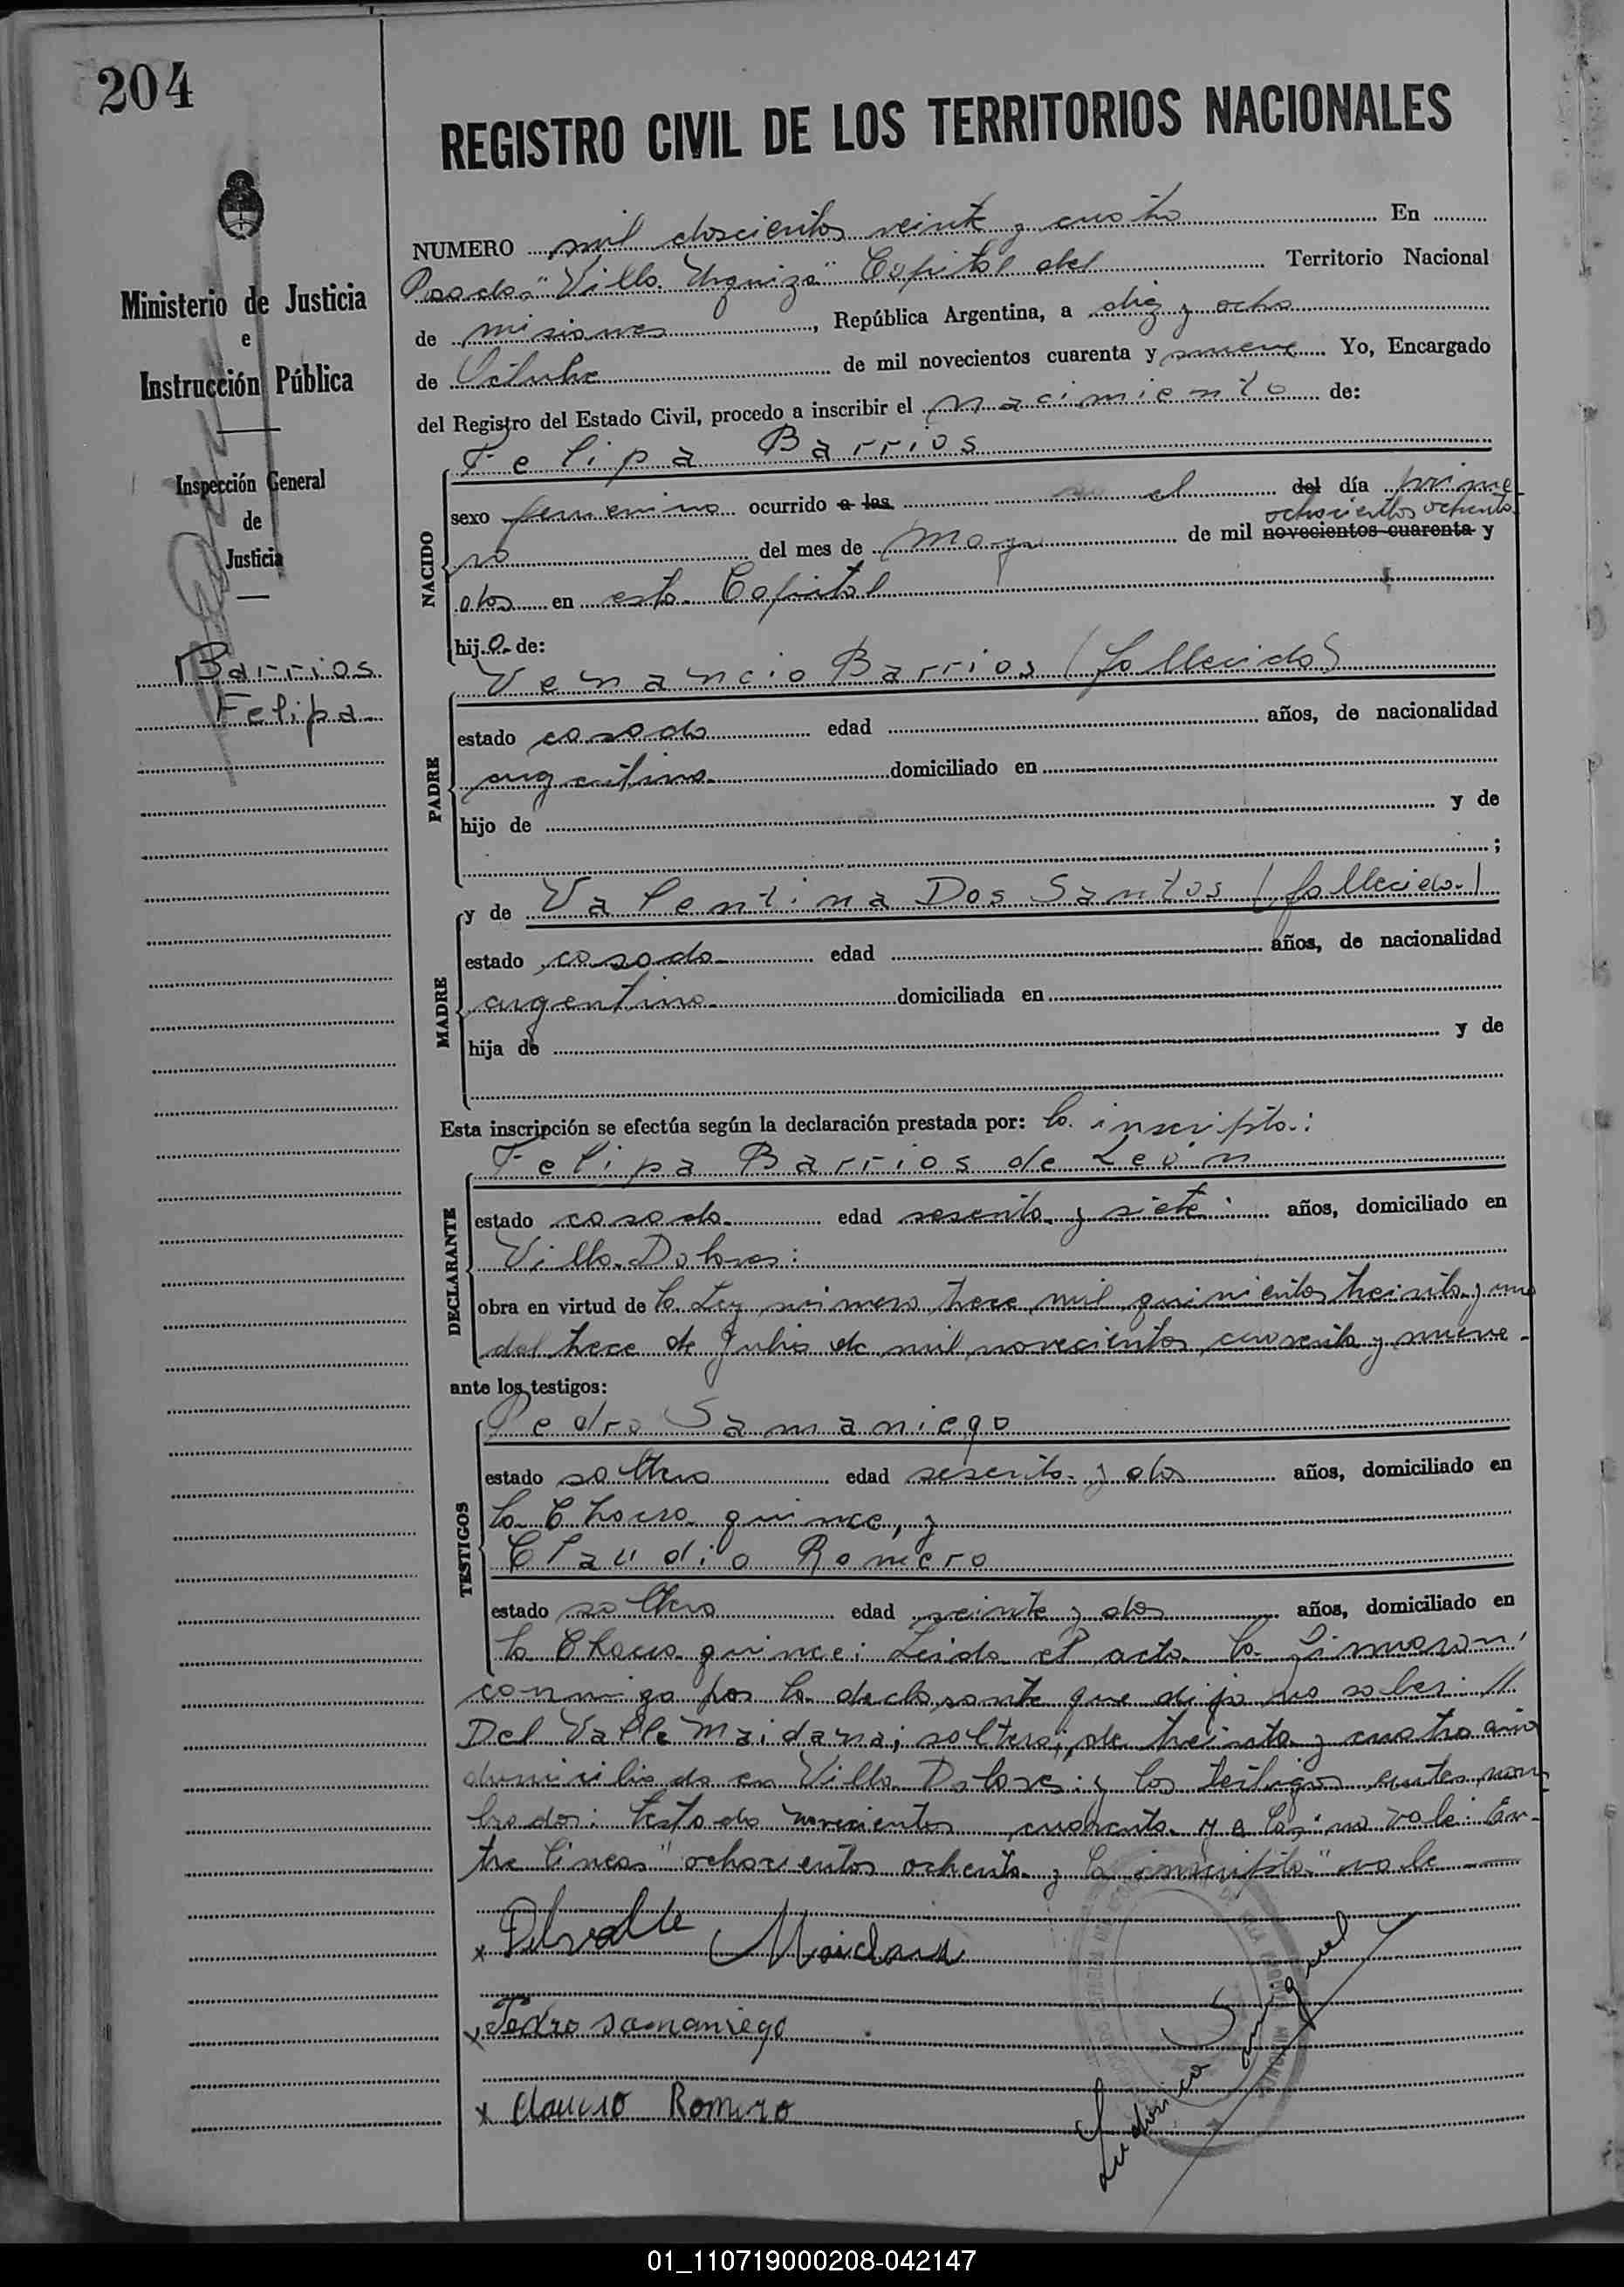 204
REGISTRO CIVIL DE LOS TERRITORIOS NACIONALES
Ministerio de Justicia
e
Instrucción Pública
Inspección General
de
Justicia
Barrios
Felipa
NUMERO mil doscientos veinte y cuatro En
Posadas "Villa Urquiza" Capital del Territorio Nacional
de Misiones, República Argentina, a diez y ocho
de Octubre de mil novecientos cuarenta y nueve Yo, Encargado
del Registro del Estado Civil, procedo a inscribir el nacimiento de:
NACIDO
Felipa Barrios
sexo femenino ocurrido a las el del día prime
ochocientos ochenta
ro del mes de Mayo de mil novecientos cuarenta y
dos en esta Capital
hija de:
PADRE
Venancio Barrios (fallecido)
estado casado edad años, de nacionalidad
argentino domiciliado en
hijo de y de
;
MADRE
y de Valentina Dos Santos (fallecida)
estado casada edad años, de nacionalidad
argentina domiciliada en
hija de y de
Esta inscripción se efectúa según la declaración prestada por: la inscripta:
DECLARANTE
Felipa Barrios de León
estado casada edad sesenta y siete años, domiciliado en
Villa Dolores:
obra en virtud de la Ley número trece mil quinientos treinta y uno
del trece de Julio de mil novecientos cuarenta y nueve-
ante los testigos:
TESTIGOS
Pedro Samaniego
estado soltero edad sesenta y dos años, domiciliado en
la Chacra quince, y
Claudio Romero
estado soltero edad veinte y dos años, domiciliado en
la Chacra quince: Leida el acta la firmaron
conmigo por la declarante que dijo no saber: //
Del Valle Maidana; soltero; de treinta y cuatro años
domiciliado en Villa Dolores: y los testigos antes nom
brados: Testado novecientos cuarenta y a las: no vale: En-
tre lineas "ochocientos ochenta y la inscripta" vale
x Delvalle Maidana
x Pedro Samaniego
x Claudio Romero
Ludovico Samiguel
01_110719000208-042147